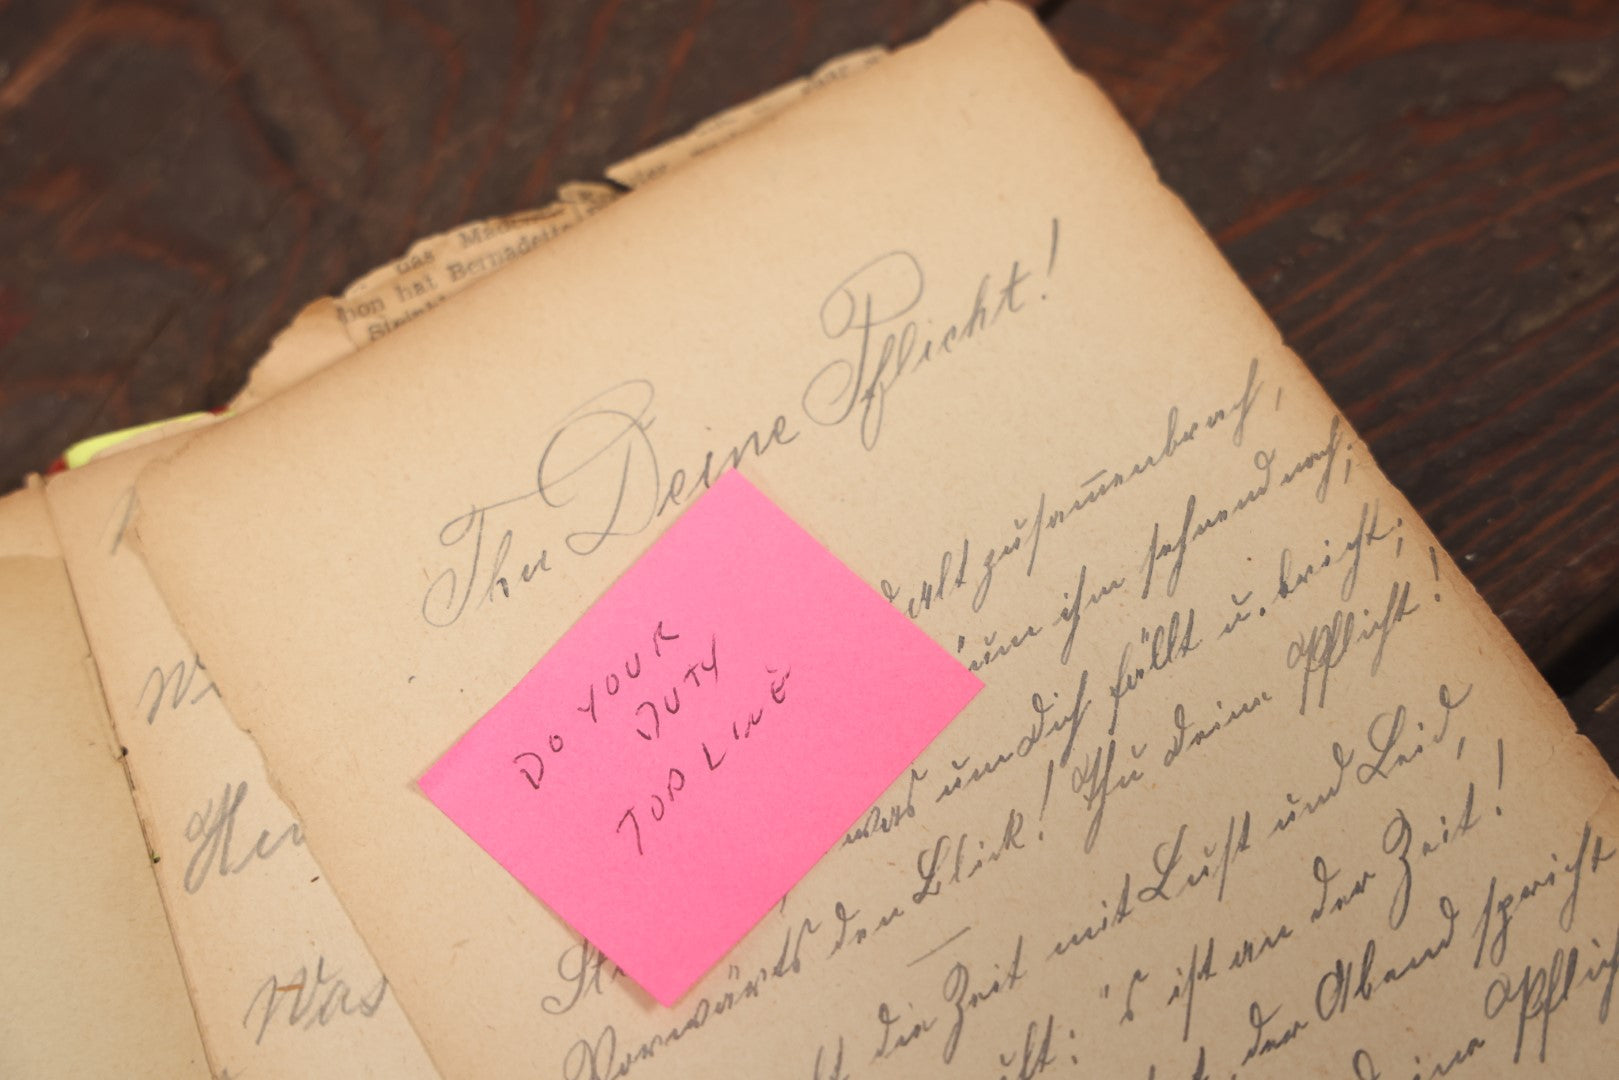 das Mäd
hon hat Bernadette
Thu Deine Pflicht!
alt zusam̅enbrach,
um ihm sehnend nach;
was um Dich fällt u. bricht;
Vorwärts den Blick! Thu deine Pflicht!
die Zeit mit Lust und Leid,
's ist an der Zeit!
der Abend spricht
Pflich
DO YOUR
DUTY
TOP LINE
Her
Was